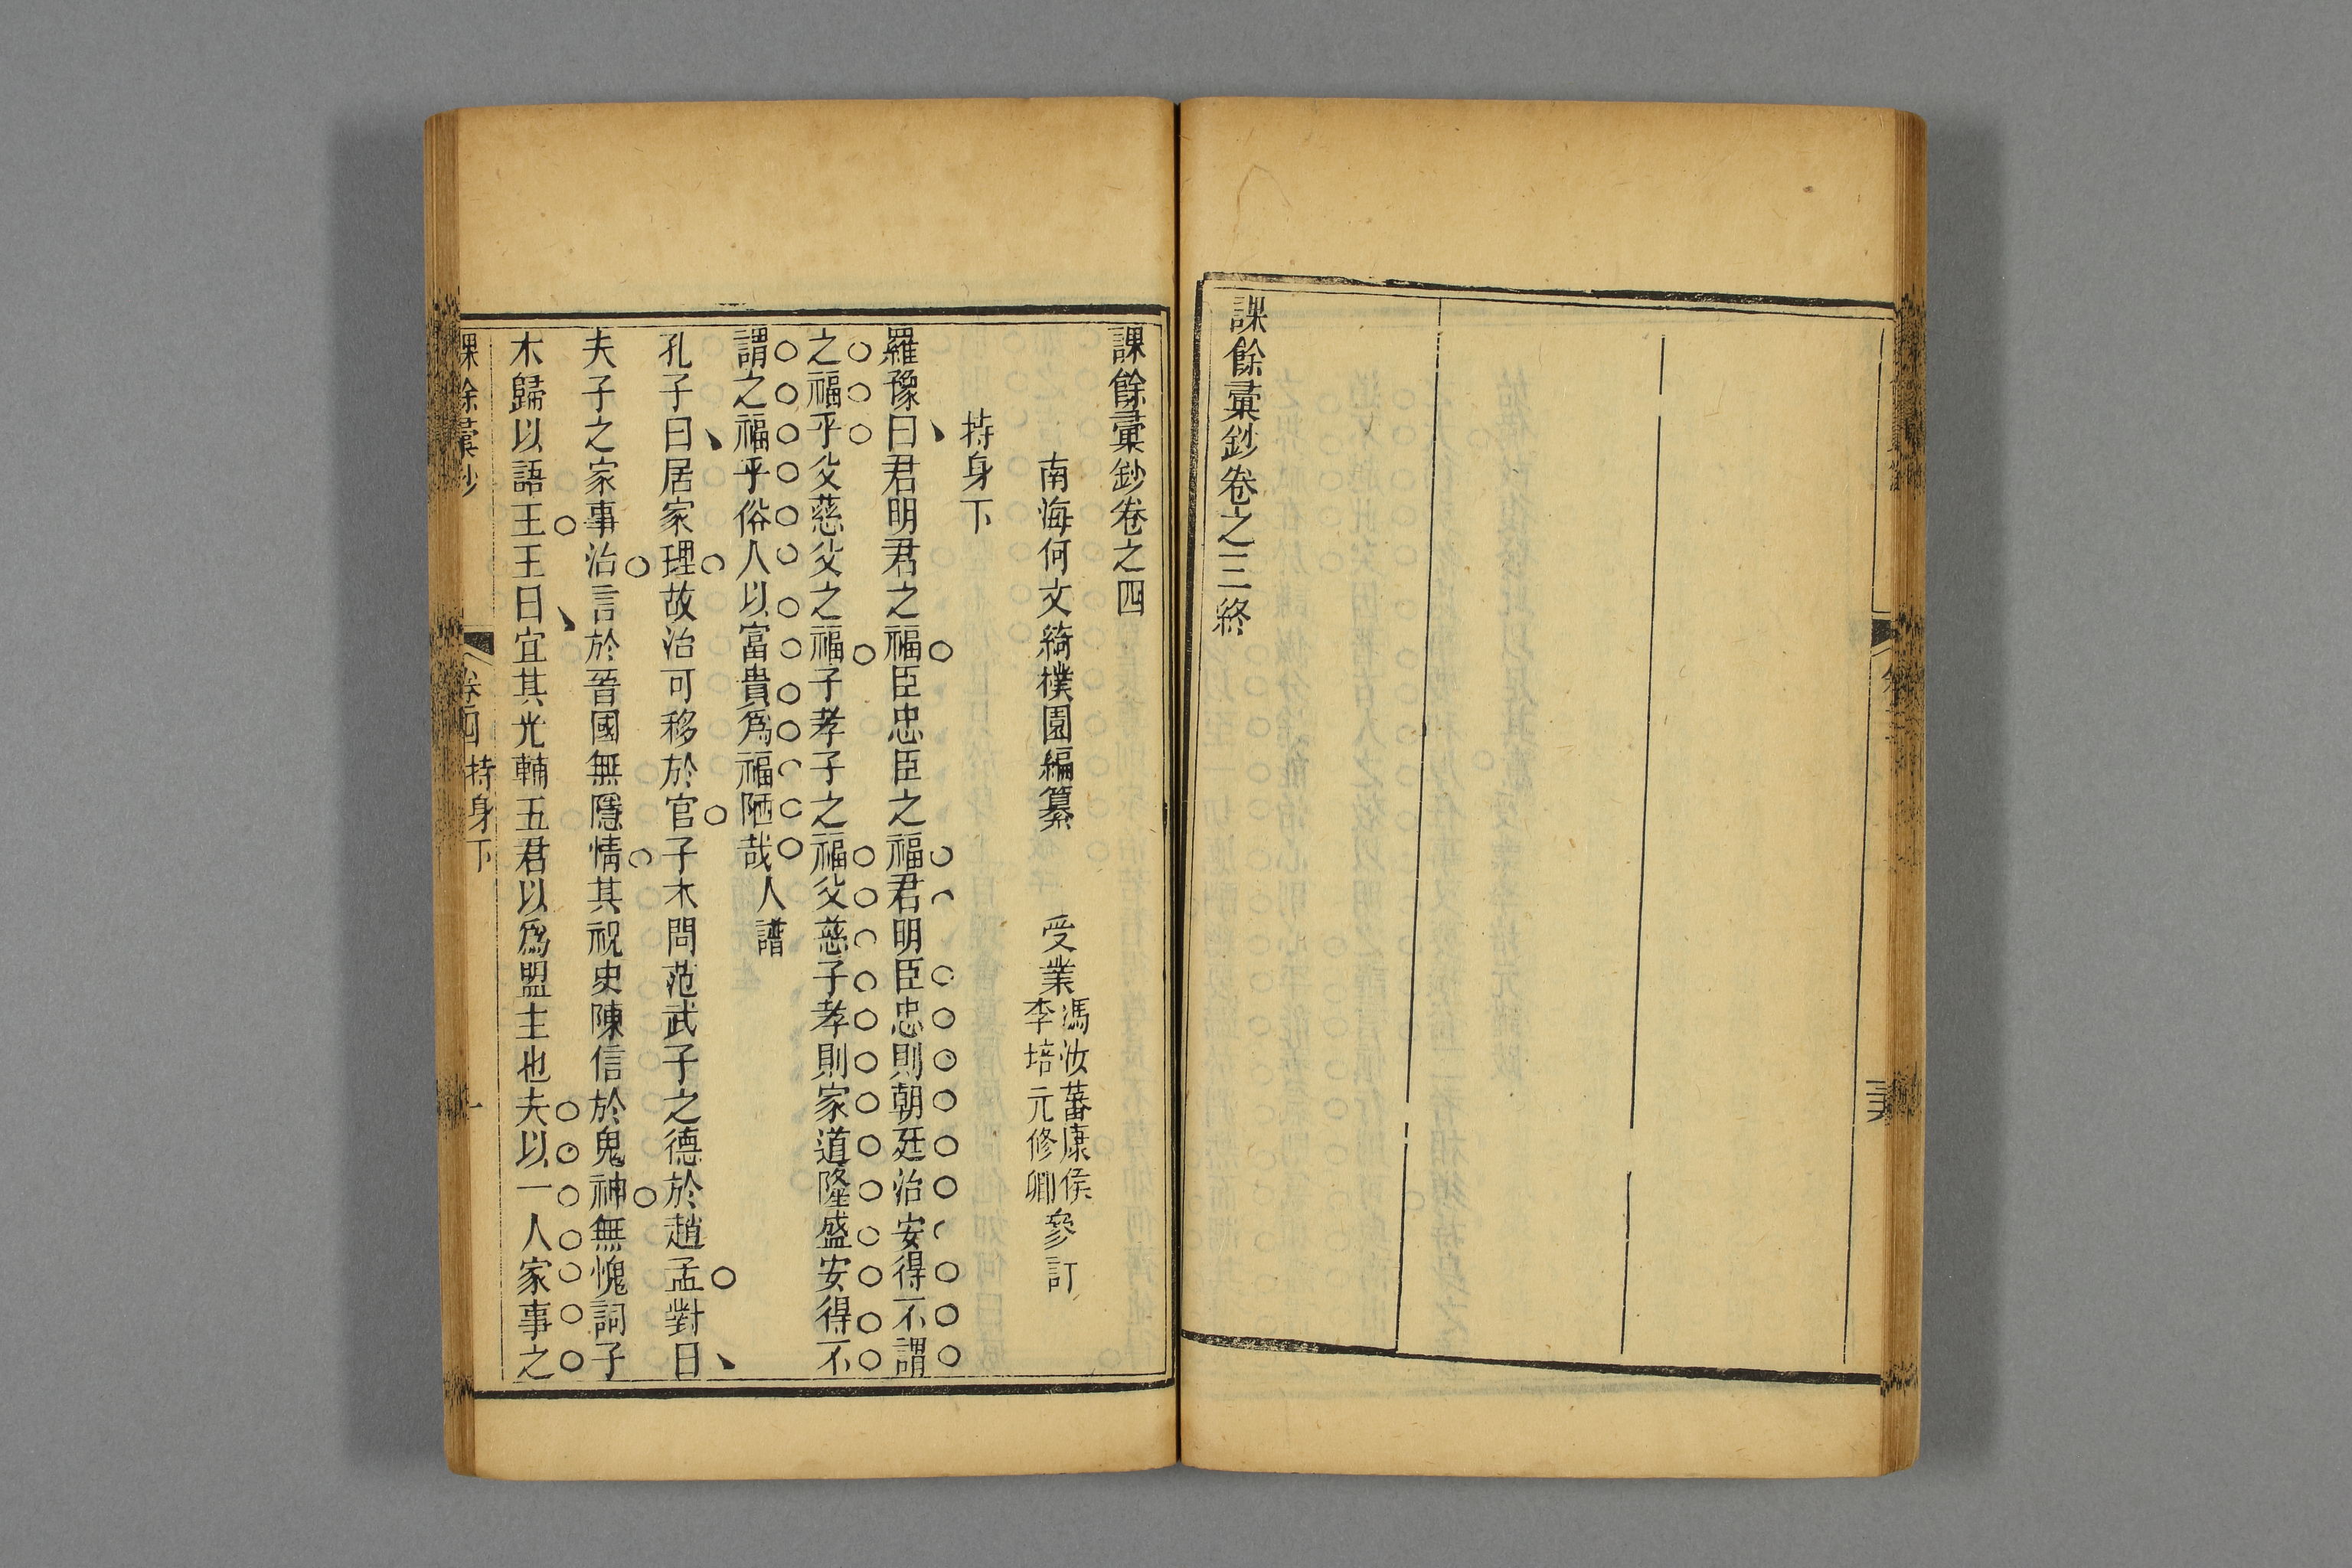 課餘彙鈔卷之三終
課餘彙鈔卷之四
南海何文綺樸園編纂 受業馮汝蕃康侯李培元修卿參訂
持身下
羅豫曰君明君之福臣忠臣之福君明臣忠則朝廷治安得不謂
之福乎父慈父之福子孝子之福父慈子孝則家道隆盛安得不
謂之福乎俗人以富貴爲福陋哉人譜
孔子曰居家理故治可移於官子木問范武子之德於趙孟對曰
夫子之家事治言於晉國無隱情其祝史陳信於鬼神無愧詞子
木歸以語王王曰宜其光輔五君以爲盟主也夫以一人家事之
課餘彙鈔 卷四 持身下 一